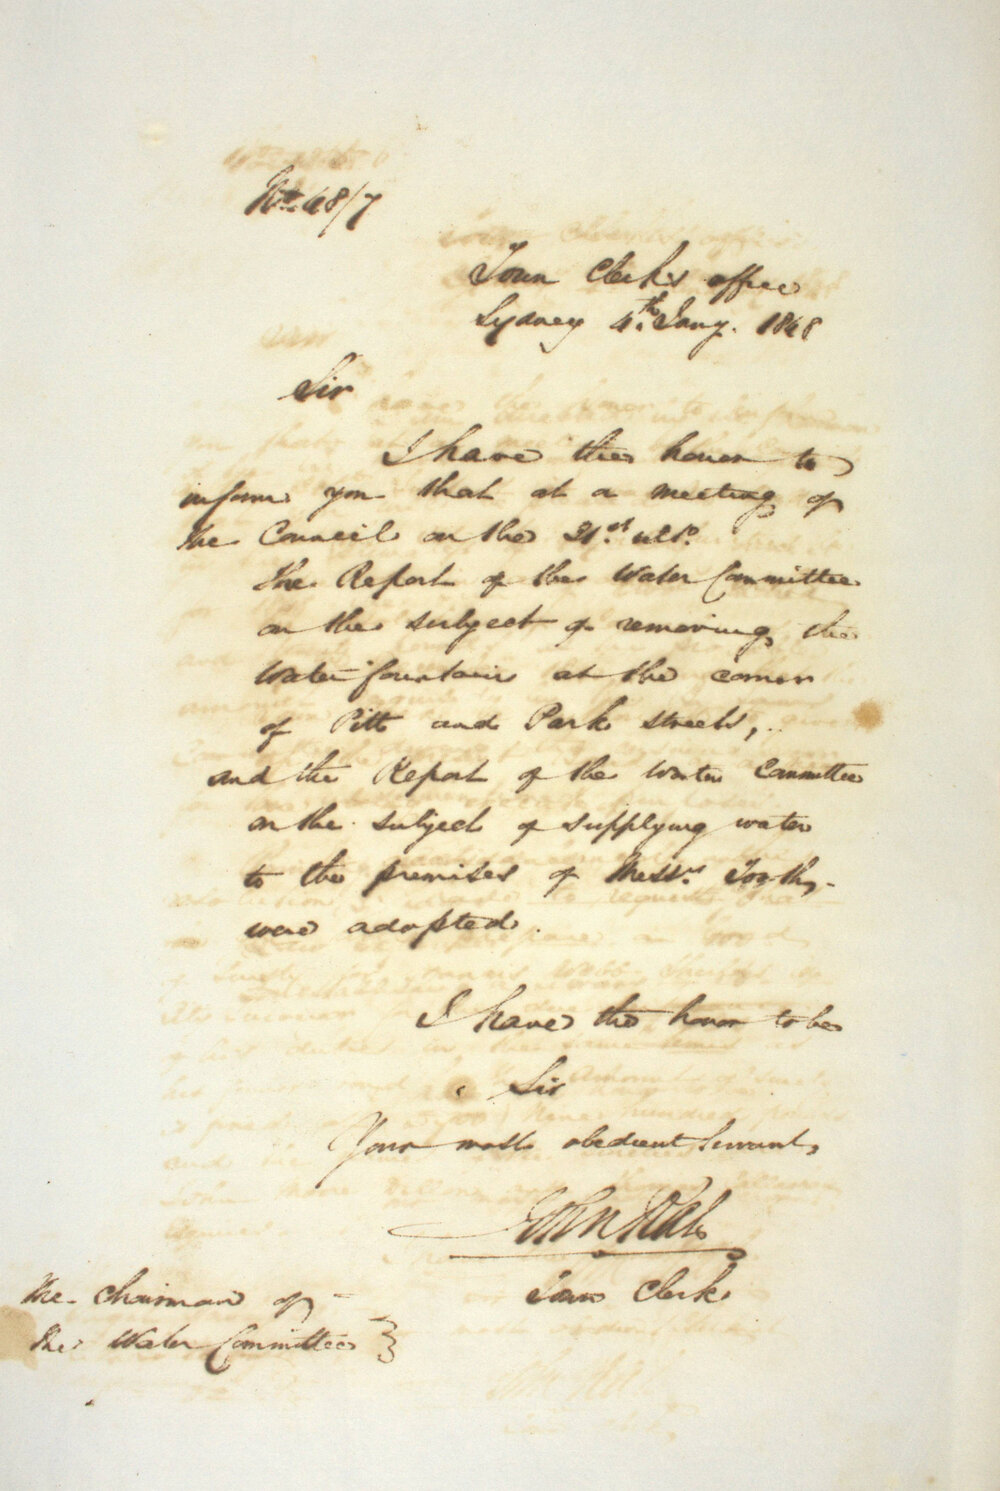 No. 48/7
Town Clerk's office
Sydney 4th. Jany. 1848
Sir
I have the honor to
inform you that at a meeting of
the Council on the 21st. ulto.
The Report of the Water Committee
on the subject of removing the
Water fountain at the corner
of Pitt and Park streets,
and the Report of the Water Committee
on the subject of supplying water
to the premises of Messrs. Tooth,
were adopted.
I have the honor to be
Sir
Your most obedient Servant,
John
Town Clerk
The Chairman of
the Water Committee }